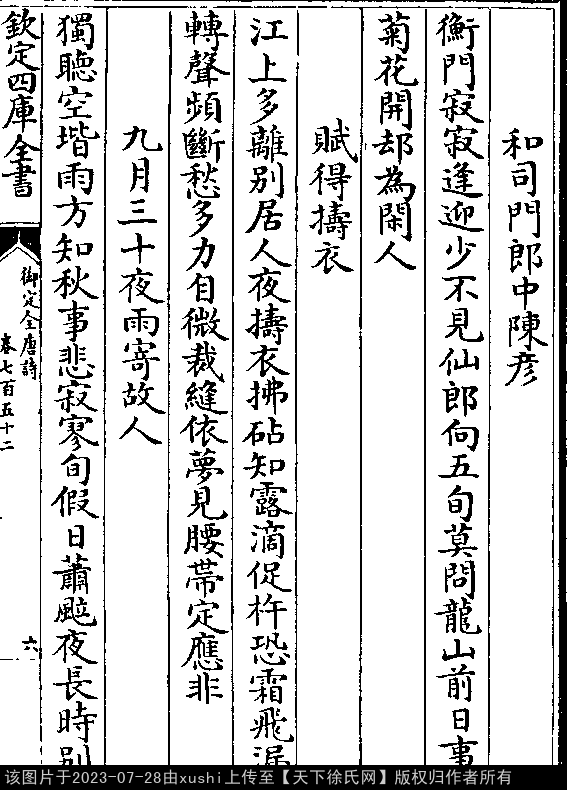 和司門郎中陳彦
衡門寂寂逢迎少不見仙郎向五旬莫問龍山前日事
菊花開却為閑人
賦得擣衣
江上多離别居人夜擣衣拂砧知露滴促杵恐霜飛漏
轉聲頻斷愁多力自微裁縫依夢見腰帶定應非
九月三十夜雨寄故人
獨聽空堦雨方知秋事悲寂寥旬假日蕭颼夜長時别
欽定四庫全書
御定全唐詩
卷七百五十二
六
该图片于2023-07-28由xushi上传至【天下徐氏网】版权归作者所有